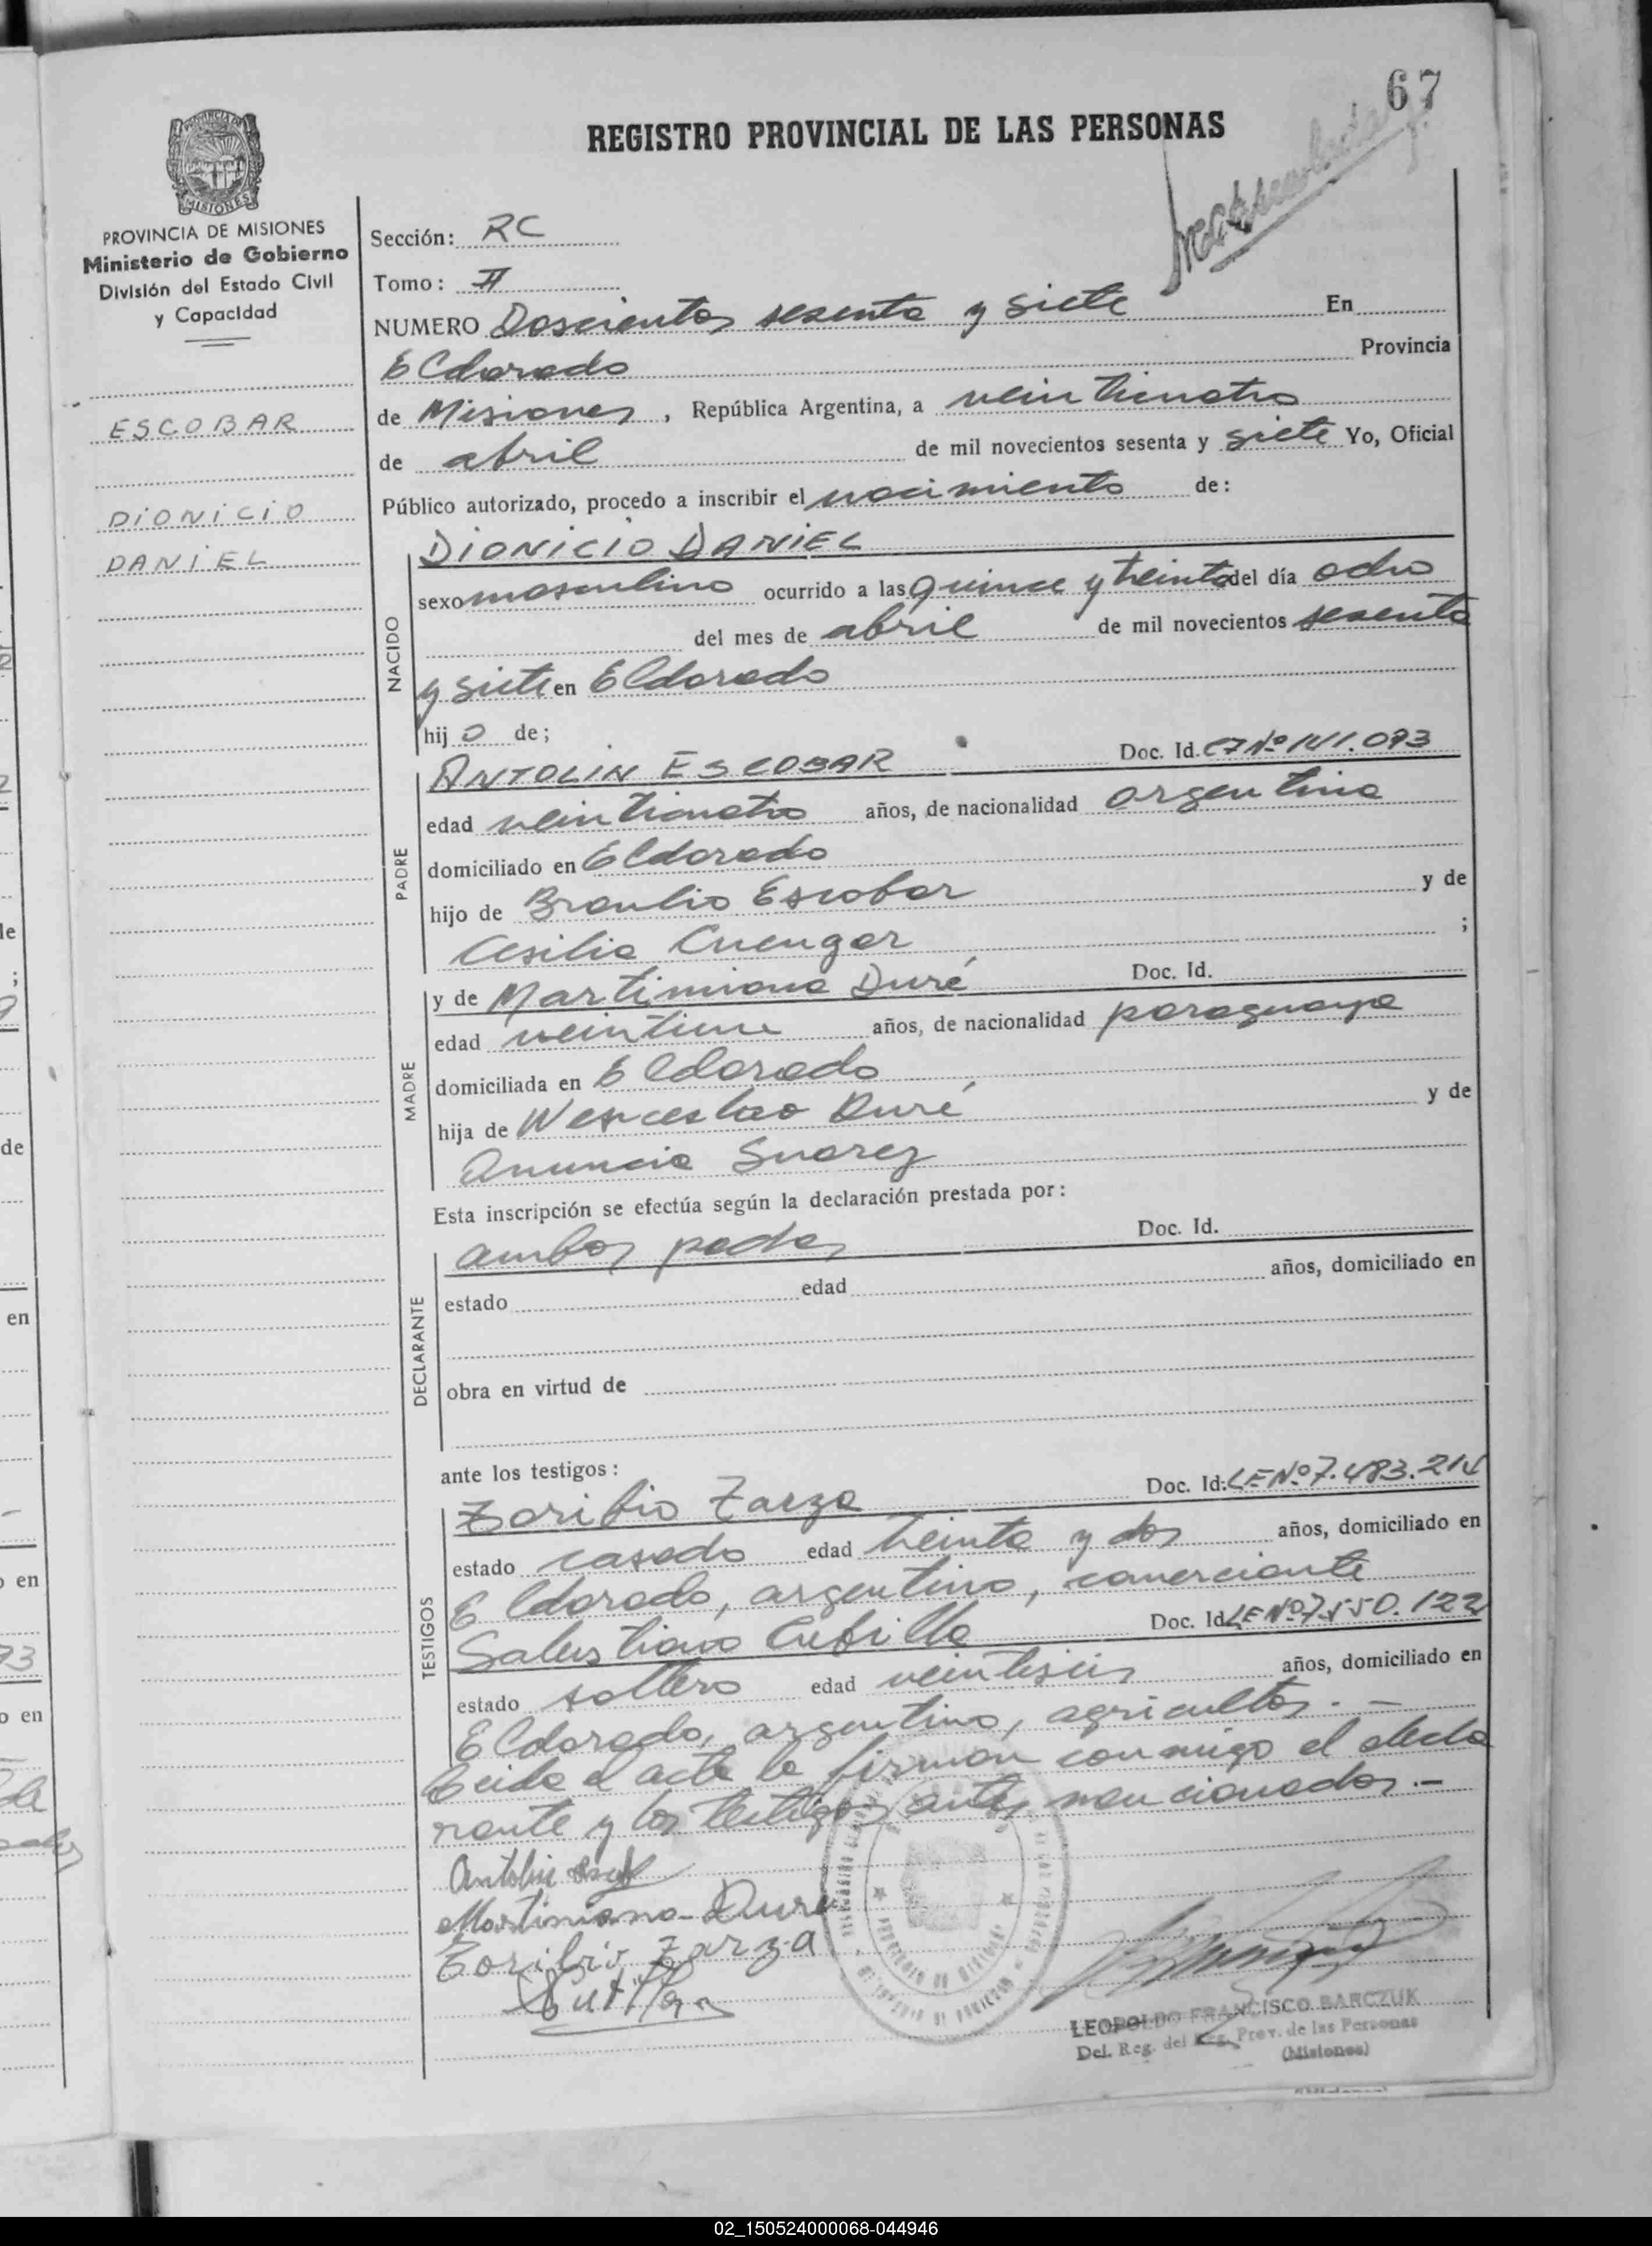 67
REGISTRO PROVINCIAL DE LAS PERSONAS
PROVINCIA DE MISIONES
MISIONES
PROVINCIA DE MISIONES
Ministerio de Gobierno
División del Estado Civil
y Capacidad
ESCOBAR
DIONICIO
DANIEL
Sección: RC
Tomo: II
NUMERO Doscientos sesenta y siete En
Eldorado Provincia
de Misiones, República Argentina, a veinticuatro
de abril de mil novecientos sesenta y siete Yo, Oficial
Público autorizado, procedo a inscribir el nacimiento de:
NACIDO
DIONICIO DANIEL
sexo masculino ocurrido a las quince y treinta del día ocho
del mes de abril de mil novecientos sesenta
y siete en Eldorado
hij o de;
PADRE
ANTOLIN ESCOBAR Doc. Id. CI Nº 141.093
edad veinticuatro años, de nacionalidad argentina
domiciliado en Eldorado
hijo de Braulio Escobar y de
Cesilia Cuengar ;
MADRE
y de Martimiana Duré Doc. Id.
edad veintiun años, de nacionalidad paraguaya
domiciliada en Eldorado
hija de Wenceslao Duré y de
Anuncia Suarez
Esta inscripción se efectúa según la declaración prestada por:
DECLARANTE
ambos padres Doc. Id.
estado edad años, domiciliado en
obra en virtud de
ante los testigos:
TESTIGOS
Toribio Zarza Doc. Id: LE Nº 7.483.214
estado casado edad treinta y dos años, domiciliado en
Eldorado, argentino, comerciante
Salustiano Cubilla Doc. Id. LE Nº 7.550.122
estado soltero edad veintiseis años, domiciliado en
Eldorado, argentino, agricultor.-
Leida el acta la firman conmigo el decla
rante y los testigos antes mencionados.-
Antolin
Martimiana Duré
Toribio Zarza
LEOPOLDO FRANCISCO BARCZUK
Del. Reg. del Reg. Prov. de las Personas
(Misiones)
02_150524000068-044946